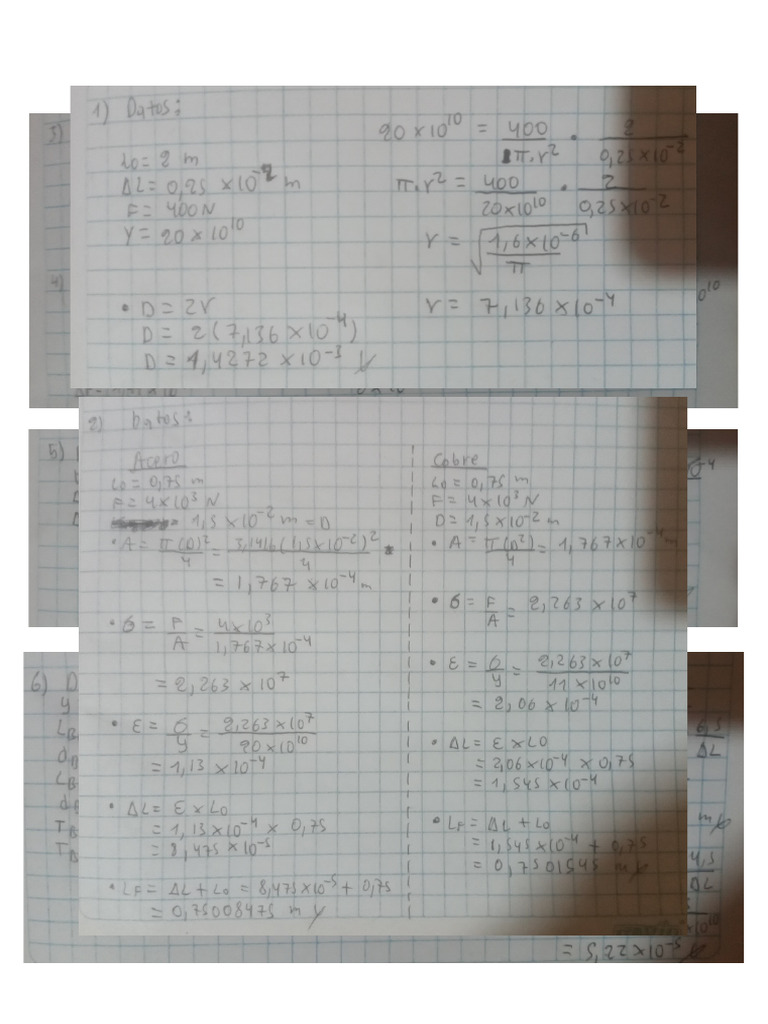 1) Datos:
L0 = 2 m
ΔL = 0,25 × 10⁻² m
F = 400 N
Y = 20 × 10¹⁰
• D = 2r
D = 2(7,136 × 10⁻⁴)
D = 1,4272 × 10⁻³
20 × 10¹⁰ = 400/π.r² • 2/0,25×10⁻²
π.r² = 400/20×10¹⁰ • 2/0,25×10⁻²
r = √(1,6×10⁻⁶/π)
r = 7,136 × 10⁻⁴
3)
4)
10
5)
2) Datos:
Acero
L0 = 0,75 m
F = 4×10³ N
1,5 × 10⁻² m = D
• A = π(D)²/4 = 3,1416(1,5×10⁻²)²/4
= 1,767 × 10⁻⁴ m
• σ = F/A = 4×10³/1,767×10⁻⁴
= 2,263 × 10⁷
• ε = σ/y = 2,263×10⁷/20×10¹⁰
= 1,13 × 10⁻⁴
• ΔL = ε × L0
= 1,13×10⁻⁴ × 0,75
= 8,475 × 10⁻⁵
• LF = ΔL + L0 = 8,475×10⁻⁵ + 0,75
= 0,75008475 m
Cobre
L0 = 0,75 m
F = 4×10³ N
D = 1,5×10⁻² m
• A = π(D²)/4 = 1,767×10⁻⁴ m
• σ = F/A = 2,263 × 10⁷
• ε = σ/y = 2,263×10⁷/11×10¹⁰
= 2,06 × 10⁻⁴
• ΔL = ε × L0
= 2,06×10⁻⁴ × 0,75
= 1,545×10⁻⁴
• LF = ΔL + L0
= 1,545×10⁻⁴ + 0,75
= 0,7501545 m
6) D
y
LB
dB
LB
TB
6,5
ΔL
m
4,5
ΔL
×10¹⁰
= 5,22×10⁻⁵